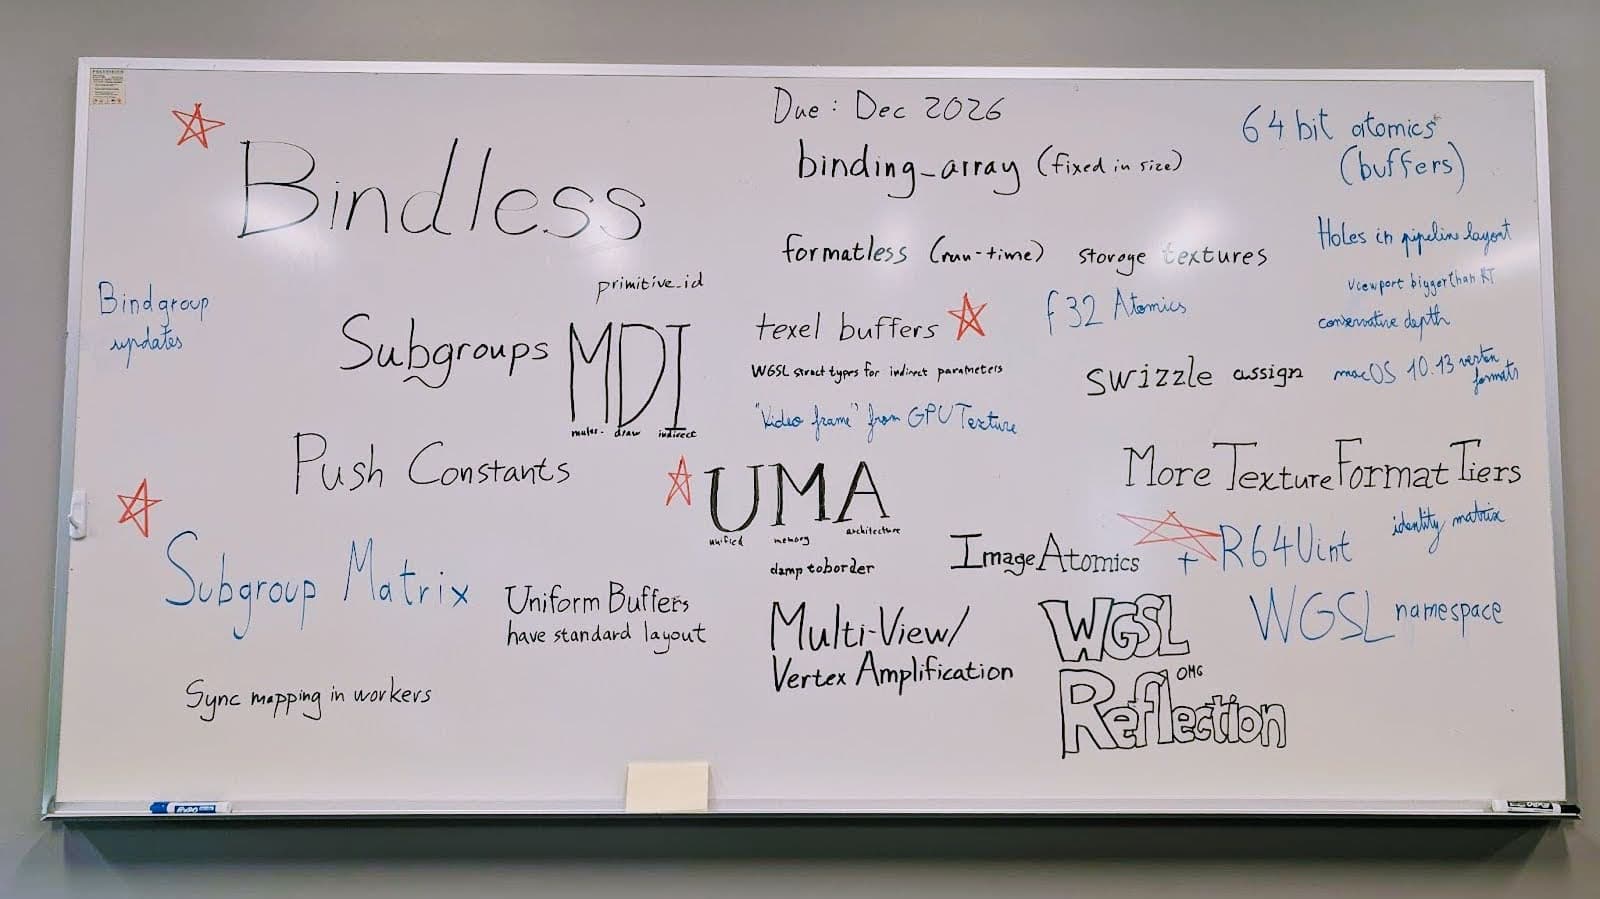 Due: Dec 2026
64 bit atomics
(buffers)
Bindless
binding_array (fixed in size)
Holes in pipeline layout
formatless (run-time) storage textures
viewport bigger than RT
primitive_id
Bindgroup
updates
texel buffers
f32 Atomics
conservative depth
Subgroups
MDI
multi- draw indirect
WGSL struct types for indirect parameters
swizzle assign
macOS 10.13 vertex
formats
"Video frame" from GPUTexture
Push Constants
More Texture Format Tiers
UMA
unified memory architecture
identity matrix
Image Atomics + R64Uint
clamp to border
Subgroup Matrix
Uniform Buffers
have standard layout
Multi-View/
Vertex Amplification
WGSL
OMG
Reflection
WGSL namespace
Sync mapping in workers
EXPO